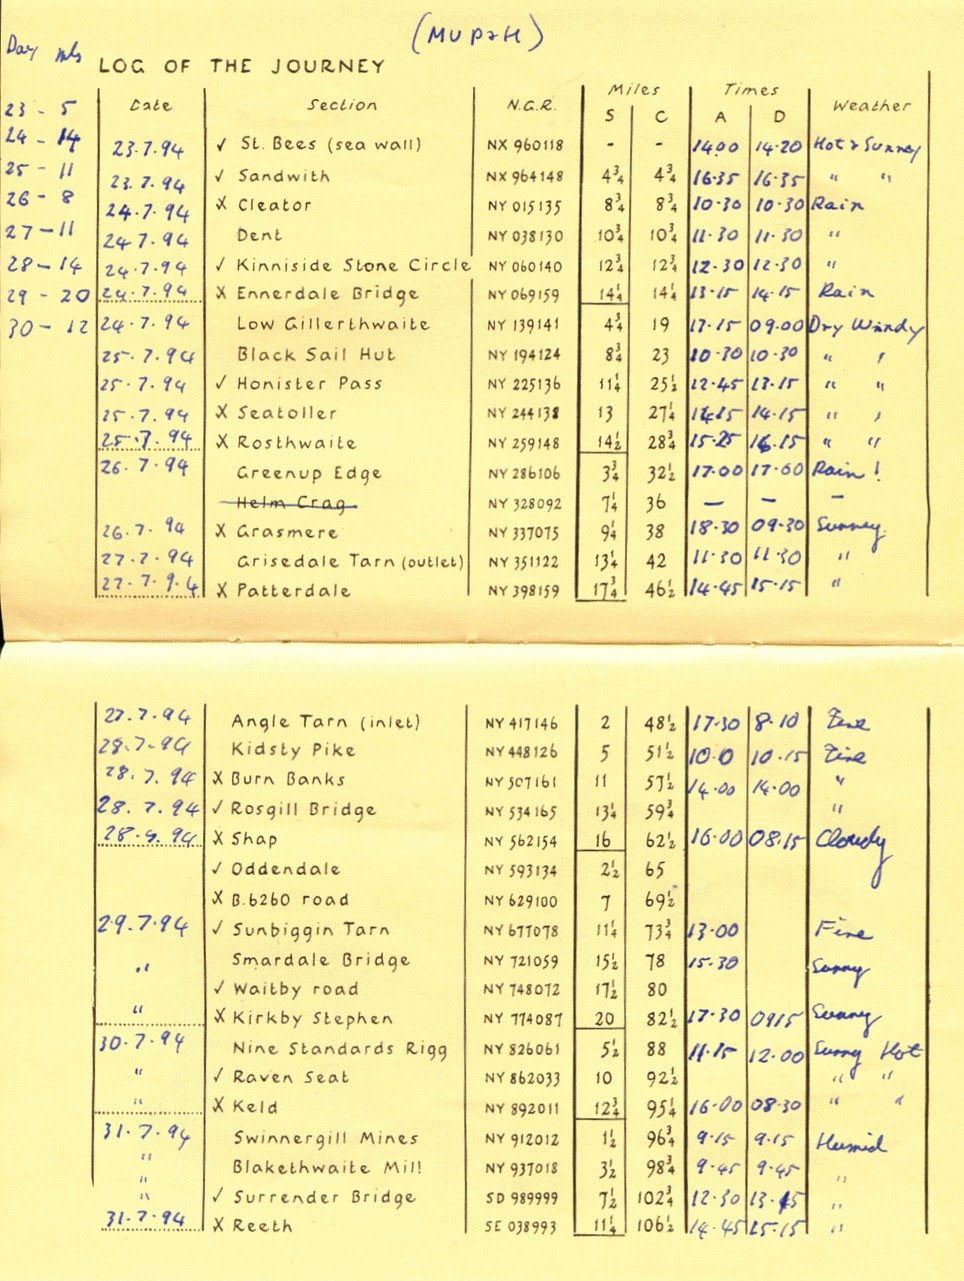 (MUPSH)
Day mls
LOG OF THE JOURNEY
Miles Times
Date Section N.G.R. S C A D Weather
23 - 5
24 - 14 23.7.94 ✓ St. Bees (sea wall) NX 960118 - - 14.00 14.20 Hot & Sunney
25 - 11 23.7.94 ✓ Sandwith NX 964148 4¾ 4¾ 16.35 16.35 " "
26 - 8 24.7.94 X Cleator NY 015135 8¾ 8¾ 10.30 10.30 Rain
27 - 11 24.7.94 Dent NY 038130 10¾ 10¾ 11.30 11.30 "
28 - 14 24.7.94 ✓ Kinniside Stone Circle NY 060140 12¾ 12¾ 12.30 12.30 "
29 - 20 24.7.94 X Ennerdale Bridge NY 069159 14¼ 14¼ 13.15 14.15 Rain
30 - 12 24.7.94 Low Gillerthwaite NY 139141 4¾ 19 17.15 09.00 Dry Windy
25.7.94 Black Sail Hut NY 194124 8¾ 23 10.30 10.30 " "
25.7.94 ✓ Honister Pass NY 225136 11¼ 25½ 12.45 13.15 " "
25.7.94 X Seatoller NY 244138 13 27¼ 14.15 14.15 " "
25.7.94 X Rosthwaite NY 259148 14½ 28¾ 15.25 16.15 " "
26.7.94 Greenup Edge NY 286106 3¾ 32½ 17.00 17.00 Rain !
Helm Crag NY 328092 7¼ 36 - - -
26.7.94 X Grasmere NY 337075 9¼ 38 18.30 09.30 Sunney
27.7.94 Grisedale Tarn (outlet) NY 351122 13¼ 42 11.30 11.30 "
27.7.94 X Patterdale NY 398159 17¾ 46½ 14.45 15.15 "
27.7.94 Angle Tarn (inlet) NY 417146 2 48½ 17.30 8.10 Fine
28.7.94 Kidsty Pike NY 448126 5 51½ 10.0 10.15 Fine
28.7.94 X Burn Banks NY 507161 11 57½ 14.00 14.00 "
28.7.94 ✓ Rosgill Bridge NY 534165 13¼ 59¾ "
28.9.94 X Shap NY 562154 16 62½ 16.00 08.15 Cloudy
✓ Oddendale NY 593134 2½ 65
X B.6260 road NY 629100 7 69½
29.7.94 ✓ Sunbiggin Tarn NY 677078 11¼ 73¾ 13.00 Fine
" Smardale Bridge NY 721059 15½ 78 15.30 Sunny
✓ Waitby road NY 748072 17½ 80
" X Kirkby Stephen NY 774087 20 82½ 17.30 0915 Sunney
30.7.94 Nine Standards Rigg NY 826061 5½ 88 11.15 12.00 Sunny Hot
" ✓ Raven Seat NY 862033 10 92½ " "
" X Keld NY 892011 12¾ 95¼ 16.00 08.30 " "
31.7.94 Swinnergill Mines NY 912012 1½ 96¾ 9.15 9.15 Humid
" Blakethwaite Mill NY 937018 3½ 98¾ 9.45 9.45 "
" " ✓ Surrender Bridge SD 989999 7½ 102¾ 12.30 13.15 "
31.7.94 X Reeth SE 038993 11¼ 106½ 14.45 15.15 "